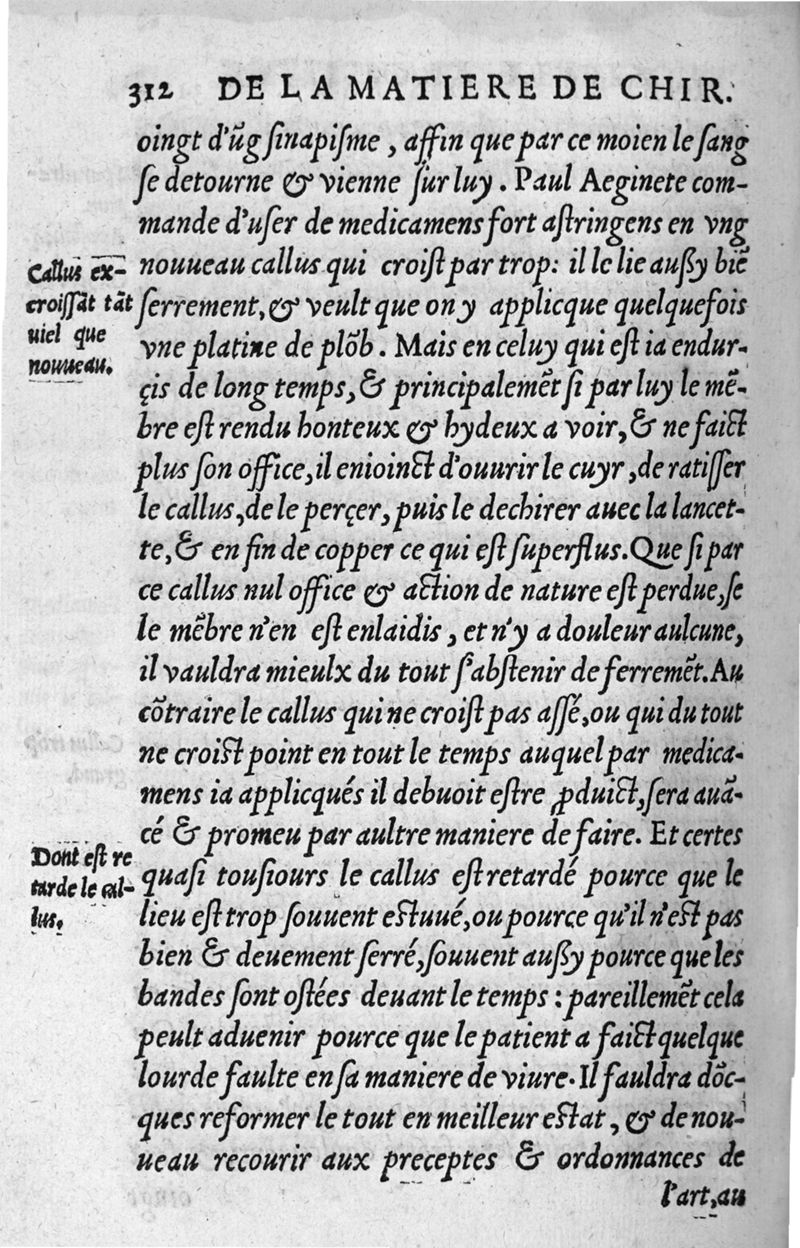 312 DE LA MATIERE DE CHIR.
oingt d'ũg ſinapiſme, affin que par ce moien le ſang
ſe detourne & vienne ſur luy. Paul Aeginete com-
mande d'uſer de medicamens fort aſtringens en vng
Callus ex-
croiſſãt tãt
uiel que
nouueau.
nouueau callus qui croiſt par trop: il le lie außy biẽ
ferrement, & veult que on y applicque quelquefois
vne platine de plõb. Mais en celuy qui eſt ia endur-
çis de long temps, & principalemẽt ſi par luy le mẽ-
bre eſt rendu honteux & hydeux a voir, & ne faict
plus ſon office, il enioinct d'ouurir le cuyr, de ratiſſer
le callus, de le perçer, puis le dechirer auec la lancet-
te, & en fin de copper ce qui eſt ſuperflus. Que ſi par
ce callus nul office & action de nature eſt perdue, ſe
le mẽbre n'en eſt enlaidis, et n'y a douleur aulcune,
il vauldra mieulx du tout ſ'abſtenir de ferremẽt. Au
cõtraire le callus qui ne croiſt pas aſſé, ou qui du tout
ne croiſt point en tout le temps auquel par medica-
mens ia applicqués il debuoit eſtre ꝓduict, ſera auã-
cé & promeu par aultre maniere de faire. Et certes
Dont eſt re
tarde le cal-
lus.
quaſi touſiours le callus eſt retardé pource que le
lieu eſt trop ſouuent eſtuué, ou pource qu'il n'eſt pas
bien & deuement ſerré, ſouuent außy pource que les
bandes ſont oſtées deuant le temps: pareillemẽt cela
peult aduenir pource que le patient a faict quelque
lourde faulte en ſa maniere de viure. Il fauldra dõc-
ques reformer le tout en meilleur eſtat, & de nou-
ueau recourir aux preceptes & ordonnances de
l'art, au